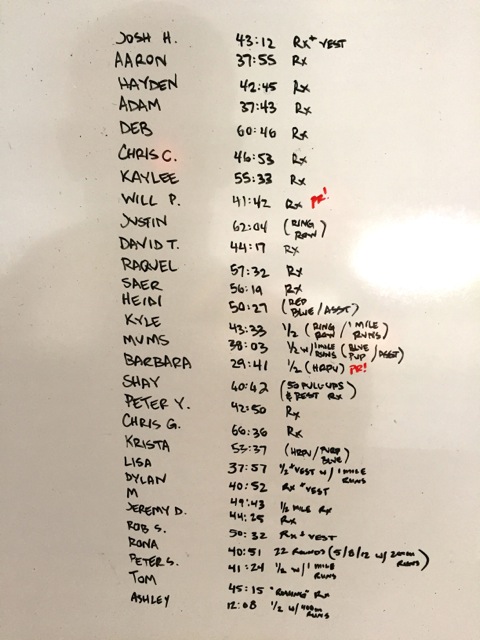 JOSH H. 43:12 Rx + VEST
AARON 37:55 Rx
HAYDEN 42:45 Rx
ADAM 37:43 Rx
DEB 60:46 Rx
CHRIS C. 46:53 Rx
KAYLEE 55:33 Rx
WILL P. 41:42 Rx PR!
JUSTIN 62:04 (RING ROW)
DAVID T. 44:17 Rx
RAQUEL 57:32 Rx
SAER 56:19 Rx
HEIDI 50:27 (RED BLUE/ASST)
KYLE 43:33 1/2 (RING ROW / 1 MILE RUNS)
MUMS 38:03 1/2 W/ 1 MILE RUNS (BLUE PUP / ASST)
BARBARA 29:41 1/2 (HRPU) PR!
SHAY 40:42 (50 PULL-UPS & REST Rx)
PETER Y. 42:50 Rx
CHRIS G. 66:36 Rx
KRISTA 53:37 (HRPU / PURP BLUE)
LISA 37:57 1/2 + VEST W/ 1 MILE RUNS
DYLAN 40:52 Rx + VEST
M 49:43 1/2 MILE Rx
JEREMY D. 44:25 Rx
ROB S. 50:32 Rx + VEST
RONA 40:51 22 ROUNDS (5/8/12 W/ 200M RUNS)
PETER S. 41:24 1/2 W/ 1 MILE RUNS
TOM 45:15 Rx
ASHLEY 12:08 1/2 W/ 400M RUNS